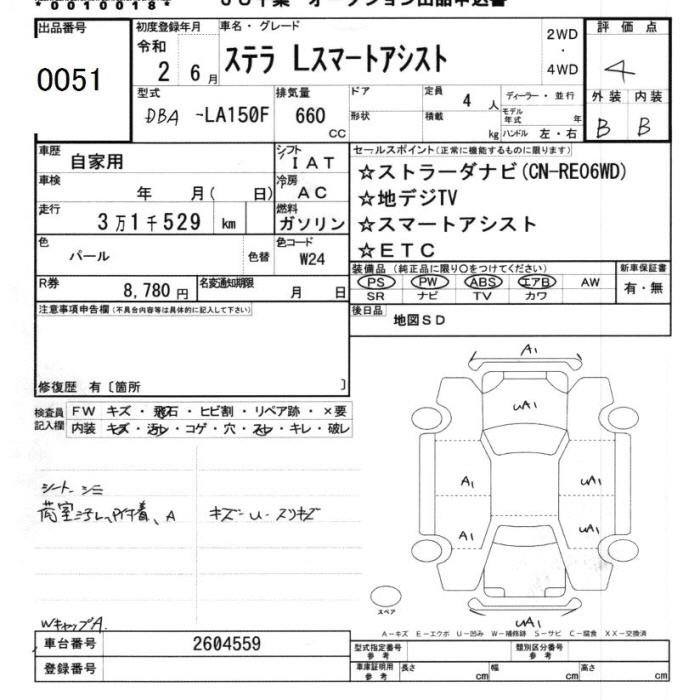 *00100018*
出品番号
0051
初度登録年月
令和
2 6月
車名・グレード
ステラ Lスマートアシスト
2WD
・
4WD
評価点
4
外装 内装
B B
型式
DBA -LA150F
排気量
660
CC
ドア
形状
定員
4 人
積載
kg
ディーラー・並行
モデル年式 年
ハンドル 左・右
車歴
自家用
シフト
IAT
車検
年 月( 日)
冷房
AC
走行
3万1千529 km
燃料
ガソリン
色
パール
色替
色コード
W24
R券
8,780円
名変通知期限
月 日
セールスポイント(正常に機能するものに限ります)
☆ストラーダナビ(CN-RE06WD)
☆地デジTV
☆スマートアシスト
☆ETC
装備品(純正品に限り○をつけてください)
PS PW ABS エアB AW
SR ナビ TV カワ
新車保証書
有・無
後日品
地図SD
注意事項申告欄(不具合内容等は具体的に記入して下さい)
修復歴 有〔箇所 〕
検査員
記入欄
FW キズ・飛石・ヒビ割・リペア跡・×要
内装 キズ・汚れ・コゲ・穴・スレ・キレ・破レ
シート シミ
荷室汚レ、付着、A
キズ・U・スリキズ
WキャップA.
A1
uA1
A1
uA1
A1
uA1
uA1
スペア
A－キズ E－エクボ U－凹み W－補修跡 S－サビ C－腐食 XX－交換済
車台番号
2604559
登録番号
型式指定番号
参考
類別区分番号
参考
車庫証明用
参考
長さ cm
幅 cm
高さ cm